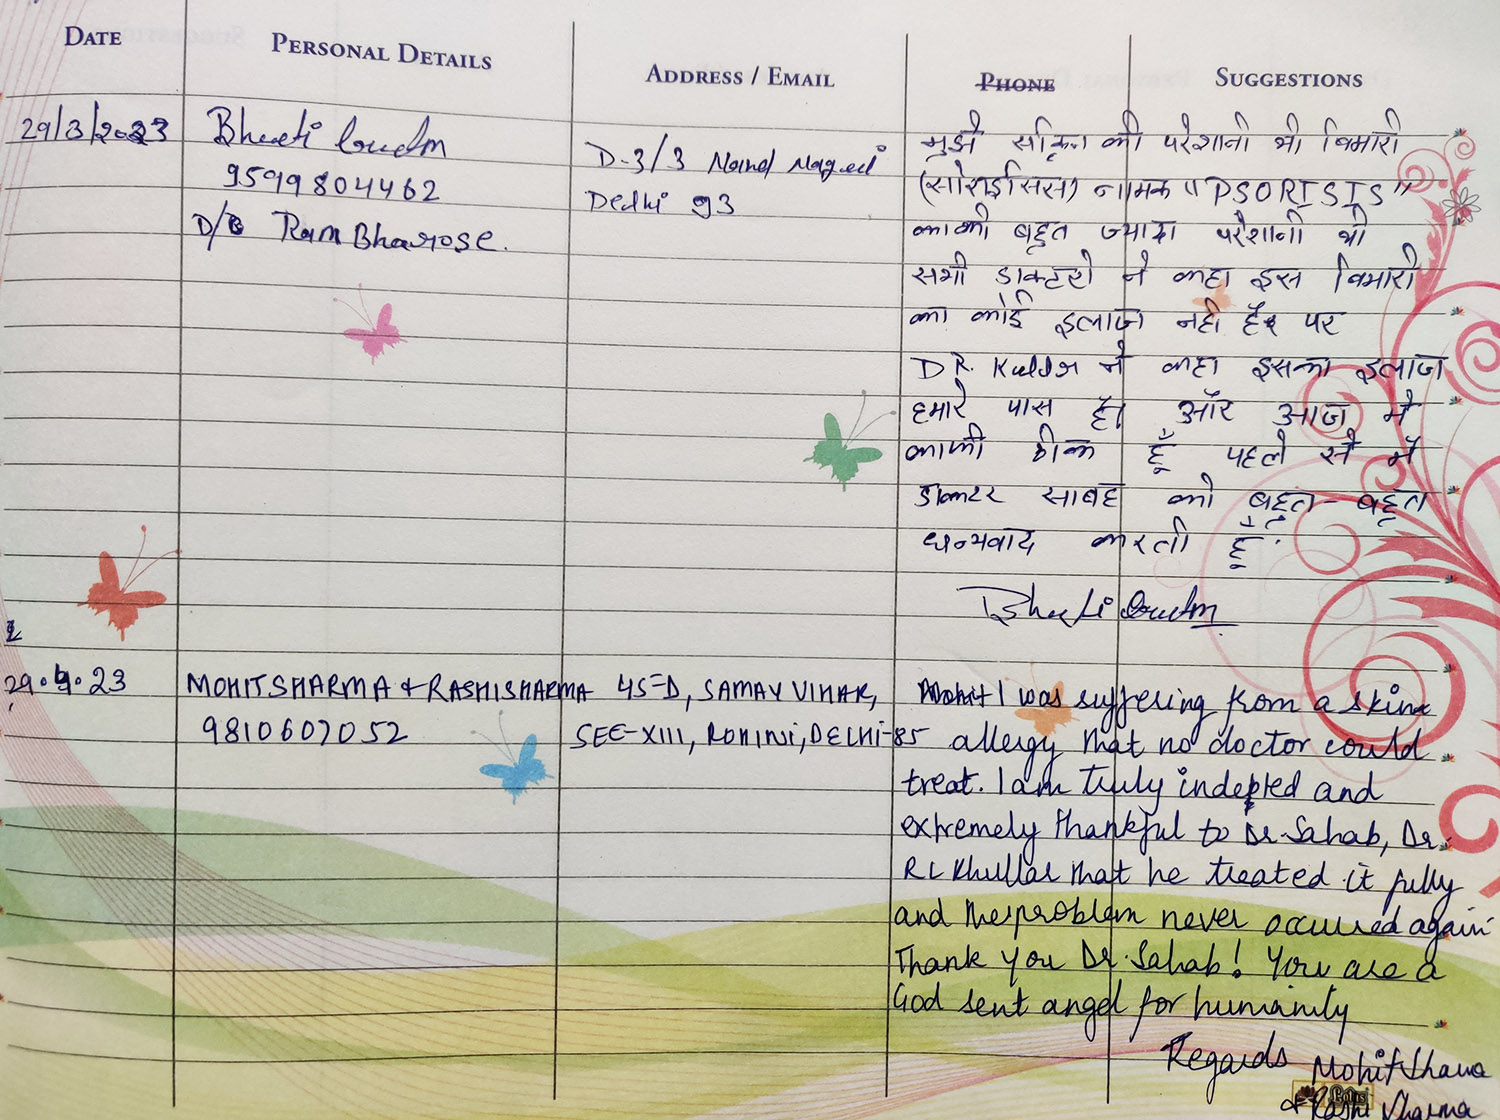 DATE
PERSONAL DETAILS
ADDRESS / EMAIL
PHONE
SUGGESTIONS
29/3/2023
Bharti
9599804462
D/O Ram Bharose.
D-3/3 Nand Nagri
Delhi 93
मुझे सकिन की परेशानी थी बिमारी
(सोराईसिस) नामक "PSORISIS"
काफी बहुत ज्यादा परेशानी थी
सभी डाक्टरो ने कहा इस बिमारी
का कोई इलाज नही है पर
DR. ने कहा इसका इलाज
हमारे पास है। और आज मै
काफी ठीक हूँ पहले से मैं
डाक्टर साबह को बहुत - बहुत
धन्यवाद करती हूँ।
Bharti
29.4.23
MOHIT SHARMA & RASHI SHARMA
9810607052
45-D, SAMAY VIHAR,
SEC-XIII, ROHINI, DELHI-85
Mohit I was suffering from a skin
allergy that no doctor could
treat. I am truly indepted and
extremely thankful to Dr. Sahab, Dr.
R L Khullar that he treated it fully
and the problem never occured again
Thank you Dr. Sahab! You are a
God sent angel for humanity
Regards Mohit Sharma
& Rashi Sharma
Lotus